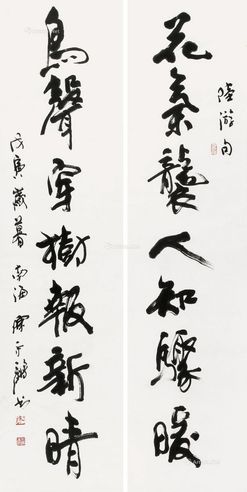 陸游句
花氣襲人知驟暖
鳥聲穿樹報新晴
戊寅歲暮南海陳永鏘書